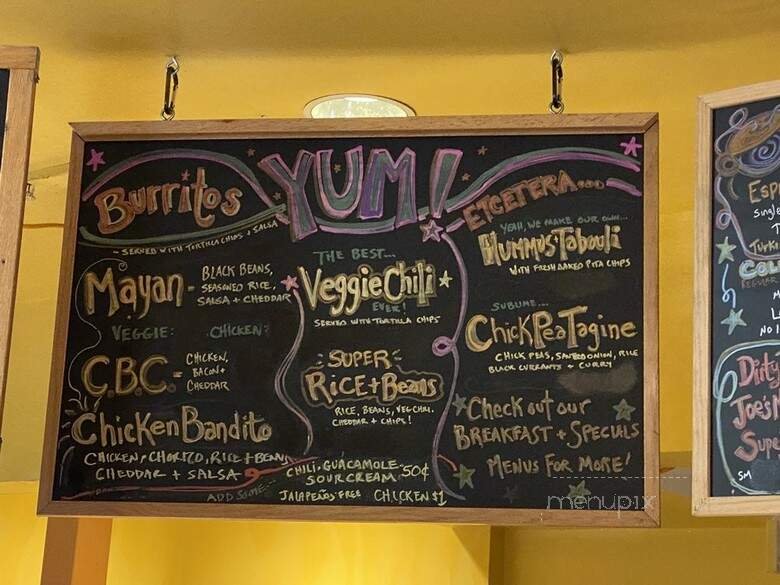 YUM!
Burritos
- SERVED WITH TORTILLA CHIPS + SALSA
Mayan - BLACK BEANS,
SEASONED RICE,
SALSA + CHEDDAR
VEGGIE: CHICKEN:
C.B.C. = CHICKEN,
BACON +
CHEDDAR
Chicken Bandito
CHICKEN, CHORIZO, RICE + BEANS
CHEDDAR + SALSA
ADD SOME...
CHILI, GUACAMOLE
SOUR CREAM 50¢
JALAPEÑOS-FREE CHICKEN $1
THE BEST...
Veggie Chili
EVER!
SERVED WITH TORTILLA CHIPS
SUPER
RICE + Beans
RICE, BEANS, VEG CHILI,
CHEDDAR + CHIPS!
ETCETERA...
YEAH, WE MAKE OUR OWN...
HUMMUS + Tabouli
WITH FRESH BAKED PITA CHIPS
SUBLIME...
ChickPea Tagine
CHICK PEAS, SAUTEED ONION, RICE
BLACK CURRANTS + CURRY
Check out our
BREAKFAST + SPECIALS
MENUS FOR MORE!
Single
COL
REGULAR
NO
Dirty
Joe's M
Sup
SM
menupix